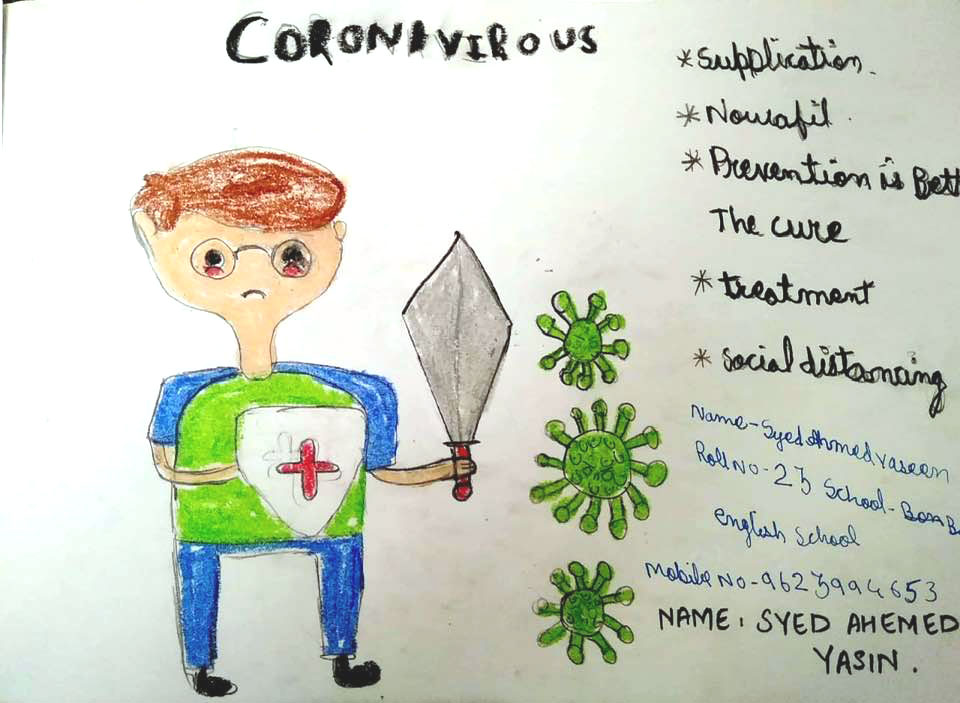 CORONAVIROUS
* Supplication.
* Nowafil.
* Prevention is Bett
The cure
* treatment
* social distancing
Name - Syed Ahmed yaseen
Roll No - 23 School - Bom B
english School
Mobile No - 9623994653
NAME: SYED AHEMED
YASIN.